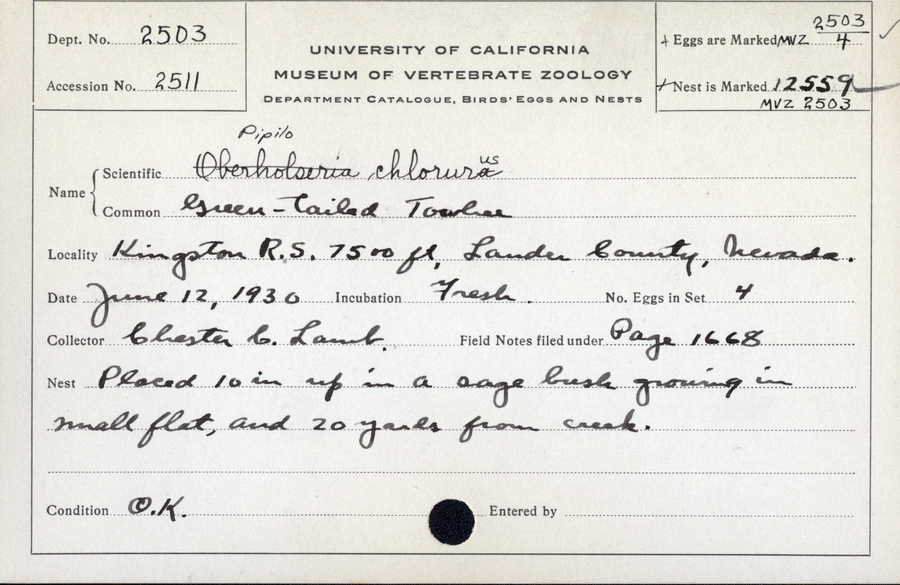 Dept. No. 2503
Accession No. 2511
UNIVERSITY OF CALIFORNIA
MUSEUM OF VERTEBRATE ZOOLOGY
DEPARTMENT CATALOGUE, BIRDS' EGGS AND NESTS
Eggs are Marked MVZ 2503/4
Nest is Marked 12559
MVZ 2503
Pipilo
Name Scientific Oberholseria chlorura us
Common Green-tailed Towhee
Locality Kingston R.S. 7500 ft, Lander County, Nevada.
Date June 12, 1930 Incubation Fresh. No. Eggs in Set 4
Collector Chester C. Lamb. Field Notes filed under Page 1668
Nest Placed 10 in up in a sage bush growing in
small flat, and 20 yards from creek.
Condition O.K. Entered by